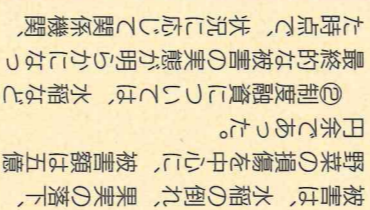 被害は、水稲の倒れ、果実の落下、
野菜の損傷を中心に、被害額は五億
円余であった。
②制度融資については、水稲など
最終的な被害の実態が明らかになっ
た時点で、状況に応じて関係機関、